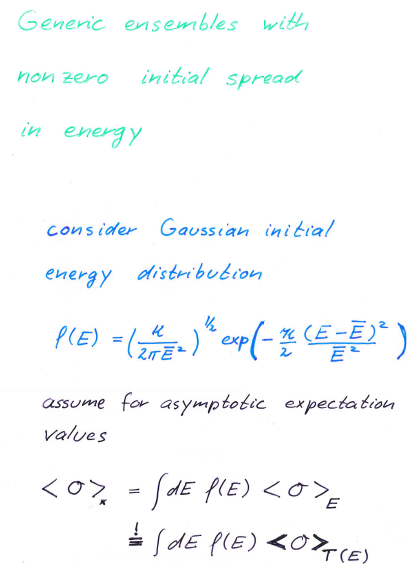 Generic ensembles with
nonzero initial spread
in energy
consider Gaussian initial
energy distribution
ρ(E) = (κ / 2πĒ²)^½ exp(-κ/2 (E-Ē)² / Ē²)
assume for asymptotic expectation
values
<σ>_* = ∫dE ρ(E) <σ>_E
≟ ∫dE ρ(E) <σ>_T(E)